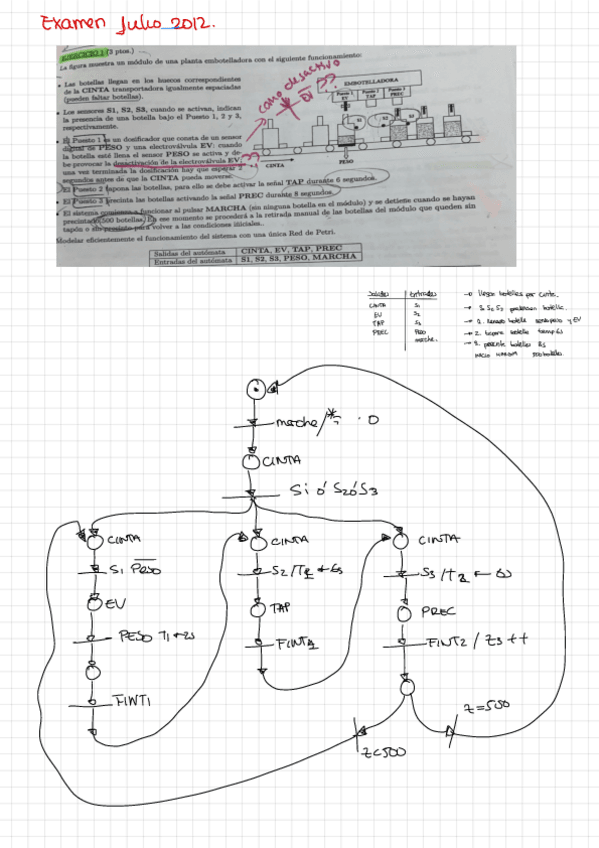 Examen Julio 2012.
EJERCICIO 1 (3 ptos.)
La figura muestra un módulo de una planta embotelladora con el siguiente funcionamiento:
• Las botellas llegan en los huecos correspondientes
de la CINTA transportadora igualmente espaciadas
(pueden faltar botellas).
• Los sensores S1, S2, S3, cuando se activan, indican
la presencia de una botella bajo el Puesto 1, 2 y 3,
respectivamente.
• El Puesto 1 es un dosificador que consta de un sensor
de PESO y una electroválvula EV: cuando
la botella esté llena el sensor PESO se activa y de-
be provocar la desactivación de la electroválvula EV,
una vez terminada la dosificación hay que esperar 2
segundos antes de que la CINTA pueda moverse.
• El Puesto 2 tapona las botellas, para ello se debe activar la señal TAP durante 6 segundos.
• El Puesto 3 precinta las botellas activando la señal PREC durante 8 segundos.
• El sistema comienza a funcionar al pulsar MARCHA (sin ninguna botella en el módulo) y se detiene cuando se hayan
precintado 500 botellas. En ese momento se procederá a la retirada manual de las botellas del módulo que queden sin
tapón o sin precinto para volver a las condiciones iniciales.
Modelar eficientemente el funcionamiento del sistema con una única Red de Petri.
Salidas del autómata CINTA, EV, TAP, PREC
Entradas del autómata S1, S2, S3, PESO, MARCHA
como desactivo
EV ??
EMBOTELLADORA
Puesto 1 EV
Puesto 2 TAP
Puesto 3 PREC
S1
S2
CINTA
PESO
Salidas Entradas
CINTA S1
EV S2
TAP S3
PREC Peso
marche.
→ llegan botellas por cinta.
500 botellas.
marche/ * · 0
CINTA
S1 ó S2 ó S3
CINTA
CINTA
CINTA
S1 Peso
S2/T2 ← 6s
EV
TAP
PREC
PESO T1 ← 2s
FINT2 / Z3 ++
FINT1
Z = 500
Z < 500